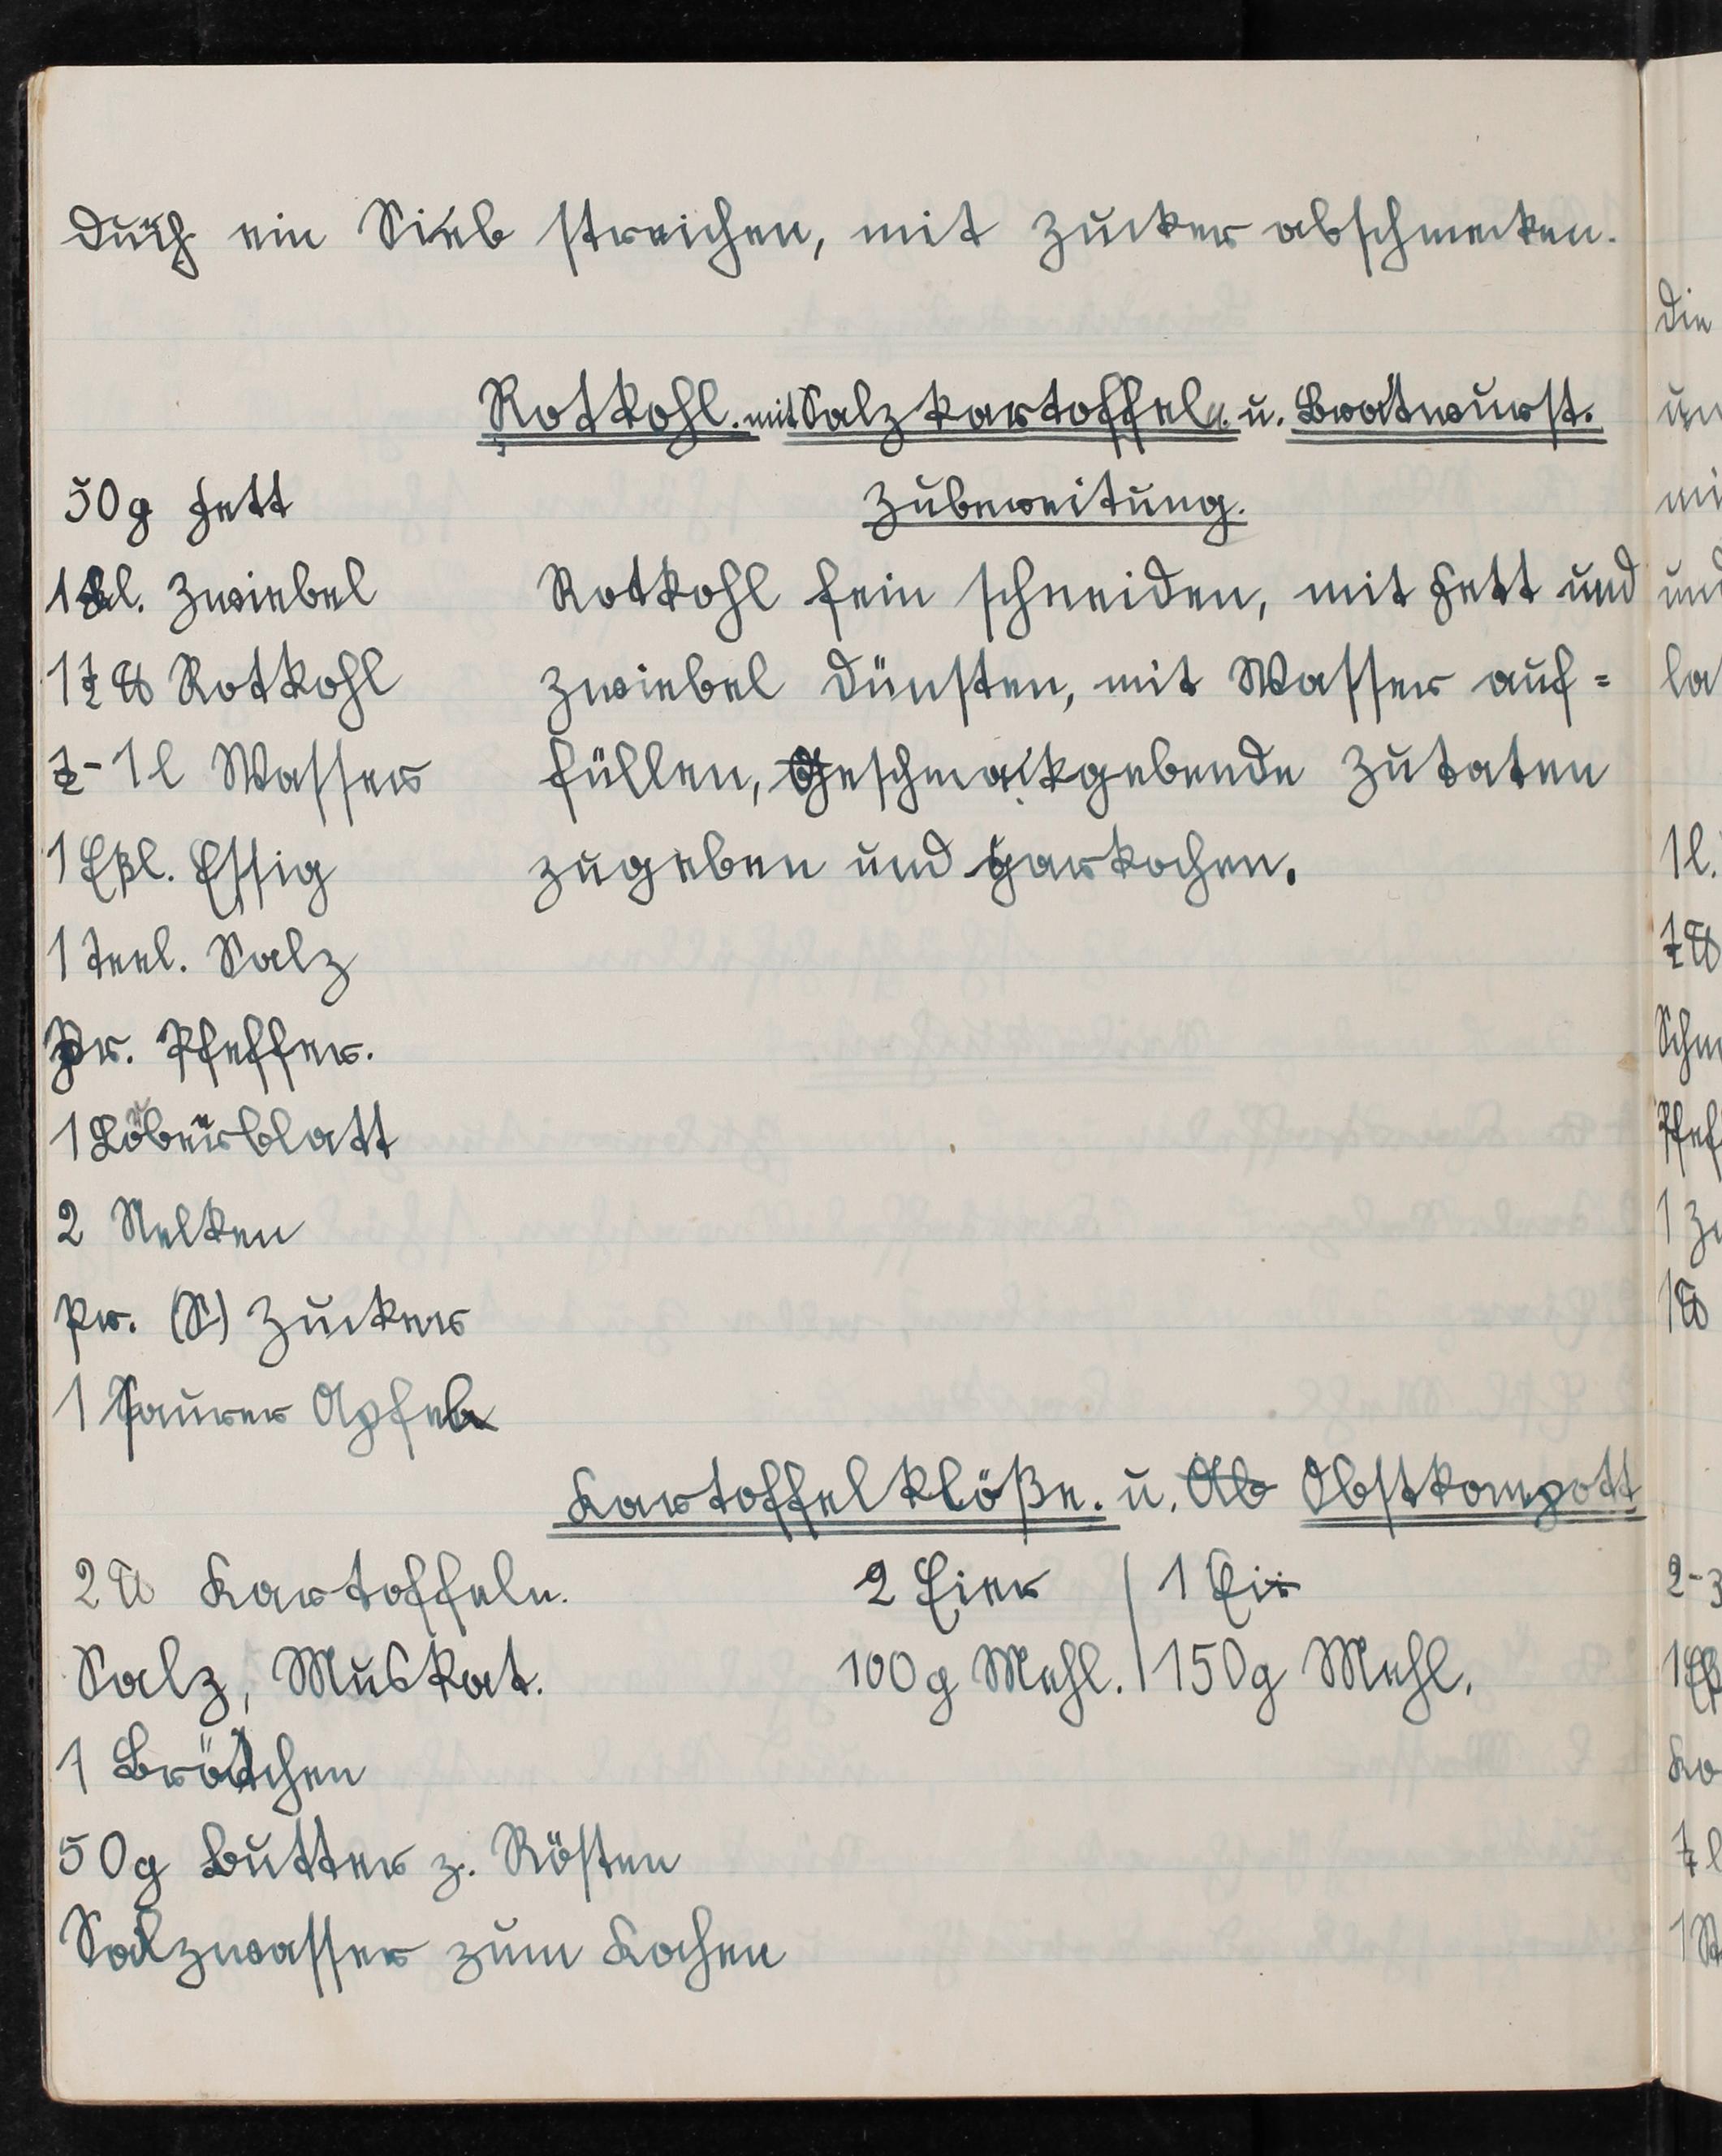 durch ein Sieb streichen, mit Zucker abschmecken.
Rotkohl. mit Salzkartoffeln. u. Bratwurst.
50g Fett
Zubereitung.
1 kl. Zwiebel
Rotkohl fein schneiden, mit Fett und
1½ ℔ Rotkohl
Zwiebel dünsten, mit Wasser auf=
½-1 l Wasser
füllen, Geschmackgebende Zutaten
1 Eßl. Essig
zugeben und garkochen.
1 Teel. Salz
Pr. Pfeffer.
1 Loberblatt
2 Nelken
Pr. (S) Zucker
1 saurer Apfel
Kartoffelklöße. u. Ob Obstkompott
2 ℔ Kartoffeln.
2 Eier / 1 Ei
Salz, Muskat.
100g Mehl. / 150g Mehl.
1 Brötchen
50g Butter z. Rösten
Salzwasser zum Kochen
die
un
mi
und
la
1 l.
½ ℔
Schm
Pfef
1 Zw
1 ℔
2-3
1 Eß
Ko
½ l